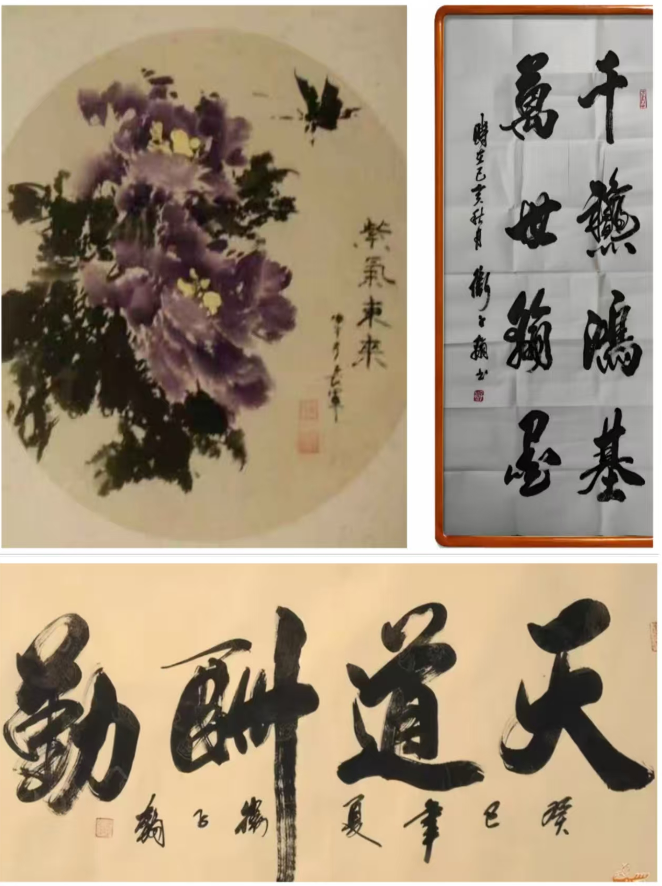 紫氣東來
千龝鴻基
萬世翰墨
時在己亥秋月
天道酬勤
癸巳年夏